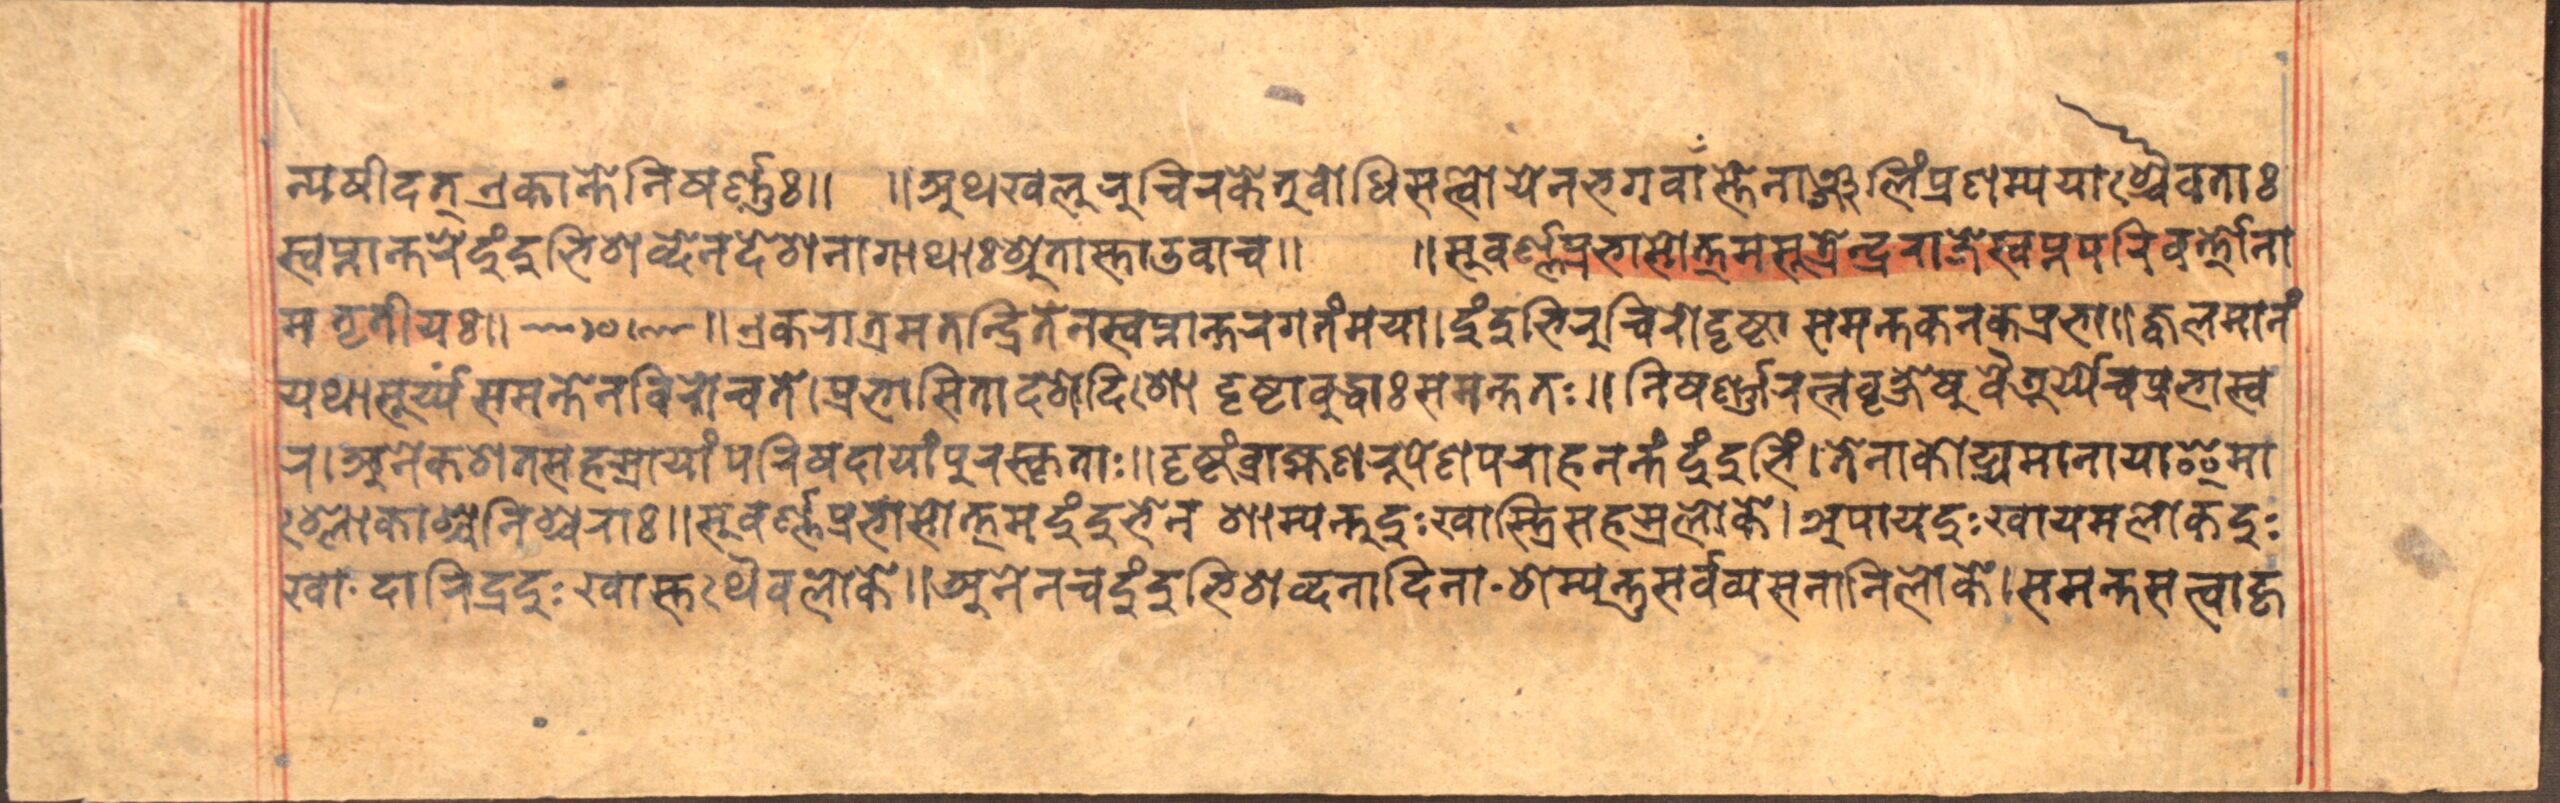 न्यषीदत् एकान्ते निषर्ण्णुः॥ ॥अथ खलु रुचिरकेतुबोधिसत्त्वो येन भगवांस्तेनाञ्जलिं प्रणम्य याश्चैवताः
स्वप्नान्तरे दुंदुभिशब्देन देशनागाथाः श्रुतास्ता उवाच॥ ॥सुवर्ण्णप्रभासोत्तमसूत्रेन्द्रराजे स्वप्नपरिवर्त्तो ना
म तृतीयः॥ ॥एकरात्रमतन्द्रितेन स्वप्नान्तरगतं मया। दुंदुभि रुचिरो दृष्टा समन्तकनकप्रभा॥ ज्वलमानं
यथा सूर्य्यं समन्तेन विरोचते। प्रभासिता दशे दिशो दृष्टा बुद्धाः समन्ततः॥ निषर्ण्णा रत्नवृक्षेषु वैडूर्य्ये च प्रभास्व
र। अनेकशतसहस्रायां परिषदायां पुरस्कृताः॥ दृष्टं ब्राह्मणरूपेण पराहनन्तं दुंदुभिं। तेनाकोट्यमानाया इमा
श्लोकाश्च निश्चराः॥ सुवर्ण्णप्रभासोत्तमदुंदुभेन शाम्यन्तु दुःखास्त्रिसहस्रलोके। अपायदुःखा यमलोकदुः
खा दारिद्रदुःखास्तथैव लोके॥ अनेन च दुंदुभिशब्दनादिना शम्यन्तु सर्वव्यसनानि लोके। समन्तसत्त्वा ह